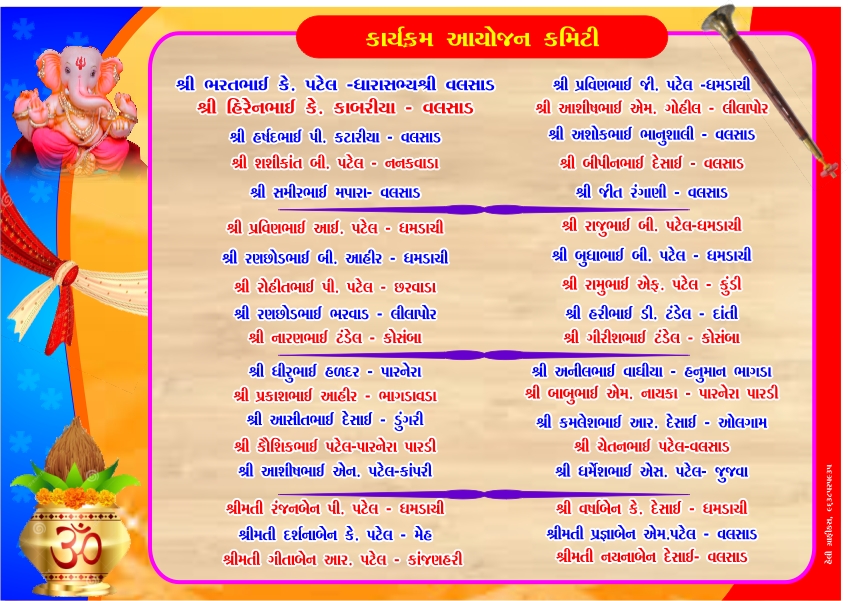 કાર્યક્રમ આયોજન કમિટી
શ્રી ભરતભાઈ કે. પટેલ -ધારાસભ્યશ્રી વલસાડ
શ્રી હિરેનભાઈ કે. કાબરીયા - વલસાડ
શ્રી હર્ષદભાઈ પી. કટારીયા - વલસાડ
શ્રી શશીકાંત બી. પટેલ - નનકવાડા
શ્રી સમીરભાઈ મપારા- વલસાડ
શ્રી પ્રવિણભાઈ જી. પટેલ -ધમડાચી
શ્રી આશીષભાઈ એમ. ગોહીલ - લીલાપોર
શ્રી અશોકભાઈ ભાનુશાલી - વલસાડ
શ્રી બીપીનભાઈ દેસાઈ - વલસાડ
શ્રી જીત રંગાણી - વલસાડ
શ્રી પ્રવિણભાઈ આઈ. પટેલ - ધમડાચી
શ્રી રણછોડભાઈ બી. આહીર - ધમડાચી
શ્રી રોહીતભાઈ પી. પટેલ - છરવાડા
શ્રી રણછોડભાઈ ભરવાડ - લીલાપોર
શ્રી નારણભાઈ ટંડેલ - કોસંબા
શ્રી રાજુભાઈ બી. પટેલ-ધમડાચી
શ્રી બુધાભાઈ બી. પટેલ - ધમડાચી
શ્રી રામુભાઈ એફ. પટેલ - કુંડી
શ્રી હરીભાઈ ડી. ટંડેલ - દાંતી
શ્રી ગીરીશભાઈ ટંડેલ - કોસંબા
શ્રી ધીરુભાઈ હળદર - પારનેરા
શ્રી પ્રકાશભાઈ આહીર - ભાગડાવડા
શ્રી આસીતભાઈ દેસાઈ - ડુંગરી
શ્રી કૌશિકભાઈ પટેલ-પારનેરા પારડી
શ્રી આશીષભાઈ એન. પટેલ-કાંપરી
શ્રી અનીલભાઈ વાઘીયા - હનુમાન ભાગડા
શ્રી બાબુભાઈ એમ. નાયકા - પારનેરા પારડી
શ્રી કમલેશભાઈ આર. દેસાઈ - ઓલગામ
શ્રી ચેતનભાઈ પટેલ-વલસાડ
શ્રી ધર્મેશભાઈ એસ. પટેલ- જુજવા
શ્રીમતી રંજનબેન પી. પટેલ - ધમડાચી
શ્રીમતી દર્શનાબેન કે. પટેલ - મેહ
શ્રીમતી ગીતાબેન આર. પટેલ - કાંજણહરી
શ્રી વર્ષાબેન કે. દેસાઈ - ધમડાચી
શ્રીમતી પ્રજ્ઞાબેન એમ.પટેલ - વલસાડ
શ્રીમતી નયનાબેન દેસાઈ- વલસાડ
ૐ